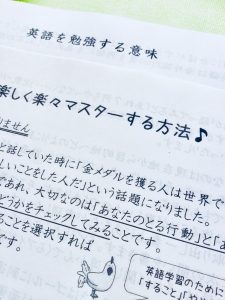 英語を勉強する意味
楽しく楽々マスターする方法♪
りません
と話していた時に「金メダルを獲る人は世界で
しいことをした人だ」という話題になりました。
であれ、大切なのは「あなたのとる行動」と「あ
どうかをチェックしてみることです。
ることを選択すれば
です。
英語学習のために
「すること」「や